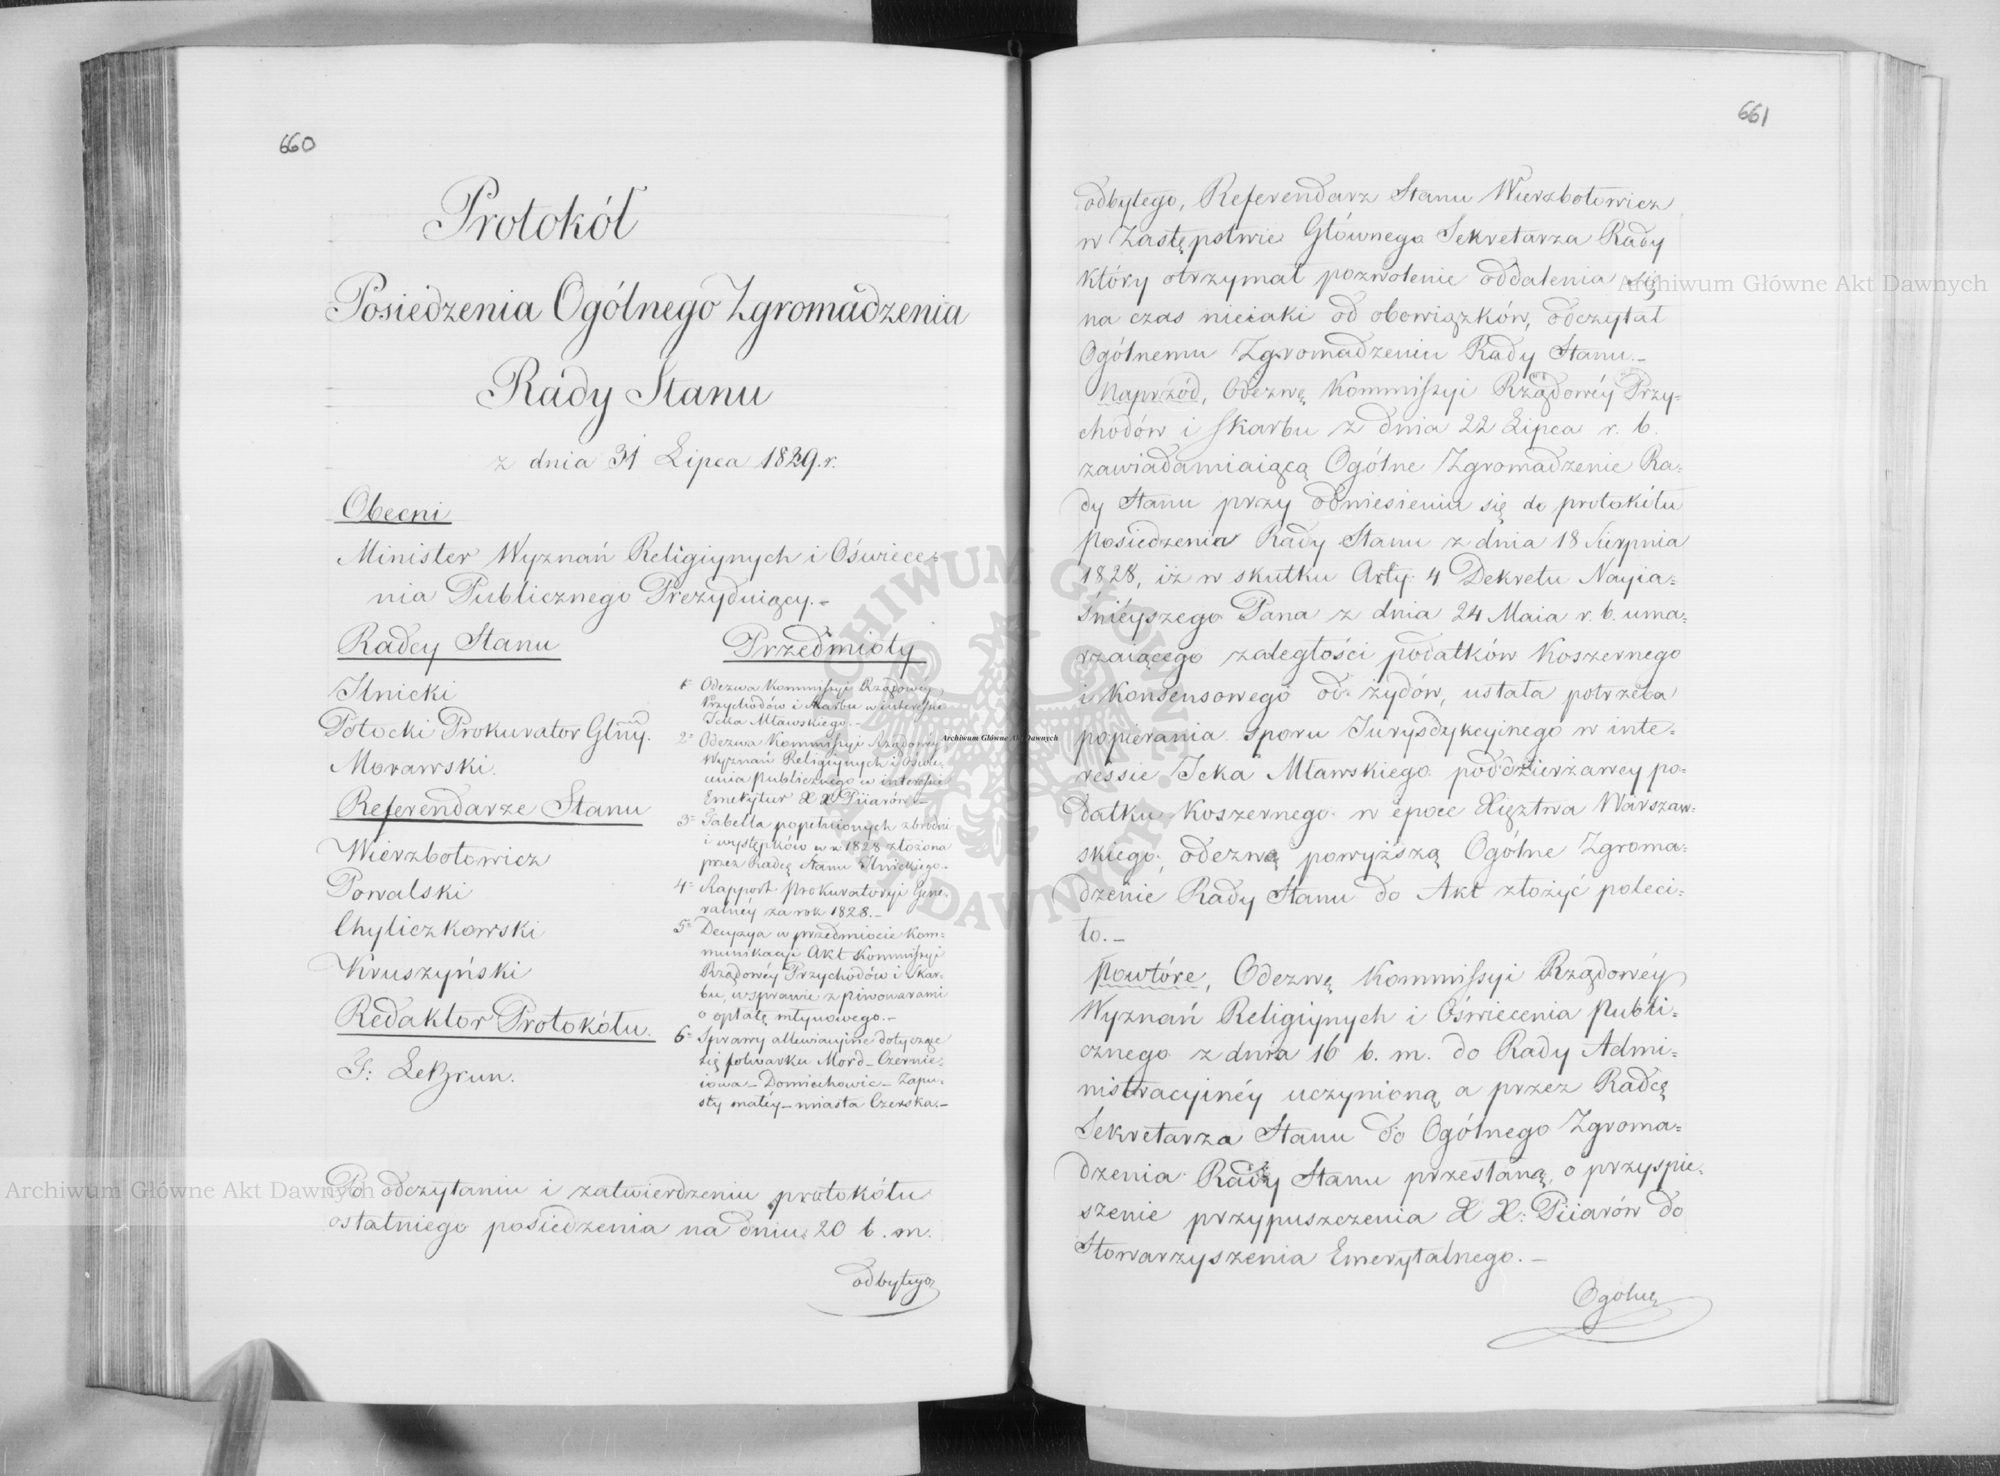 660
Protokół
Posiedzenia Ogólnego Zgromadzenia
Rady Stanu
z dnia 31 Lipca 1829 r.
Obecni
Minister Wyznań Religiynych i Oświece-
nia Publicznego Prezyduiący.-
Radcy Stanu
Ilnicki
Potocki Prokurator Glny.
Morawski.
Referendarze Stanu
Wierzbołowicz
Powalski
Chyliczkowski
Kruszyński
Redaktor Protokółu.
LeBrun.
Przedmioty
1° Odezwa Kommissyi Rządowey
Przychodów i Skarbu w interessie
Icka Mławskiego.-
2° Odezwa Kommissyi Rządowey
Wyznań Religiynych i Oświe-
cenia Publicznego w interessie
Emerytur X X Piiarów.-
3° Tabella popełnionych zbrodni
i występków w r. 1828 złożona
przez Radcę Stanu Ilnickiego.
4° Rapport Prokuratoryi Gene-
ralnéy za rok 1828.-
5° Decyzya w przedmiocie kom-
munikacyi Akt Kommissyi
Rządowéy Przychodów i Skar-
bu, w sprawie z piwowarami
o opłatę młynowego.-
6° Sprawy allewiacyine dotyczące
się folwarku Mord-Czernie-
iowa-Domiechowic-Zapu-
sty małéy-miasta Czerska.-
Po odczytaniu i zatwierdzeniu protokółu
ostatniego posiedzenia na dniu 20 b. m.
odbytego
661
odbytego, Referendarz Stanu Wierzbołowicz
w Zastępstwie Głównego Sekretarza Rady
który otrzymał pozwolenie oddalenia się
na czas nieiaki od obowiązków, odczytał
Ogólnemu Zgromadzeniu Rady Stanu.-
Naprzód, Odezwę Kommissyi Rządowéy Przy-
chodów i Skarbu z dnia 22 Lipca r. b.
zawiadamiaiącą Ogólne Zgromadzenie Ra-
dy Stanu przy odniesieniu się do protokółu
Posiedzenia Rady Stanu z dnia 18 Sierpnia
1828, iż w skutku Arty. 4 Dekretu Nayia-
śnieyszego Pana z dnia 24 Maia r. b. uma-
rzaiącego zaległości podatków Koszernego
i Konsensowego od żydów, ustała potrzeba
popierania sporu Iurysdykcyinego w inte-
ressie Icka Mławskiego poddzierżawcy po-
datku Koszernego w epoce Xięztwa Warszaw-
skiego, odezwę powyższą Ogólne Zgroma-
dzenie Rady Stanu do Akt złożyć poleci-
ło.-
Powtóre, Odezwę Kommissyi Rządowéy
Wyznań Religiynych i Oświecenia Publi-
cznego z dnia 16 b. m. do Rady Admi-
nistracyinéy uczynioną a przez Radcę
Sekretarza Stanu do Ogólnego Zgroma-
dzenia Rady Stanu przesłaną, o przyspie-
szenie przypuszczenia X X: Piiarów do
Stowarzyszenia Emerytalnego.-
Ogólne
Archiwum Główne Akt Dawnych
Archiwum Główne Akt Dawnych
Archiwum Główne Akt Dawnych
ARCHIWUM GŁÓWNE AKT DAWNYCH